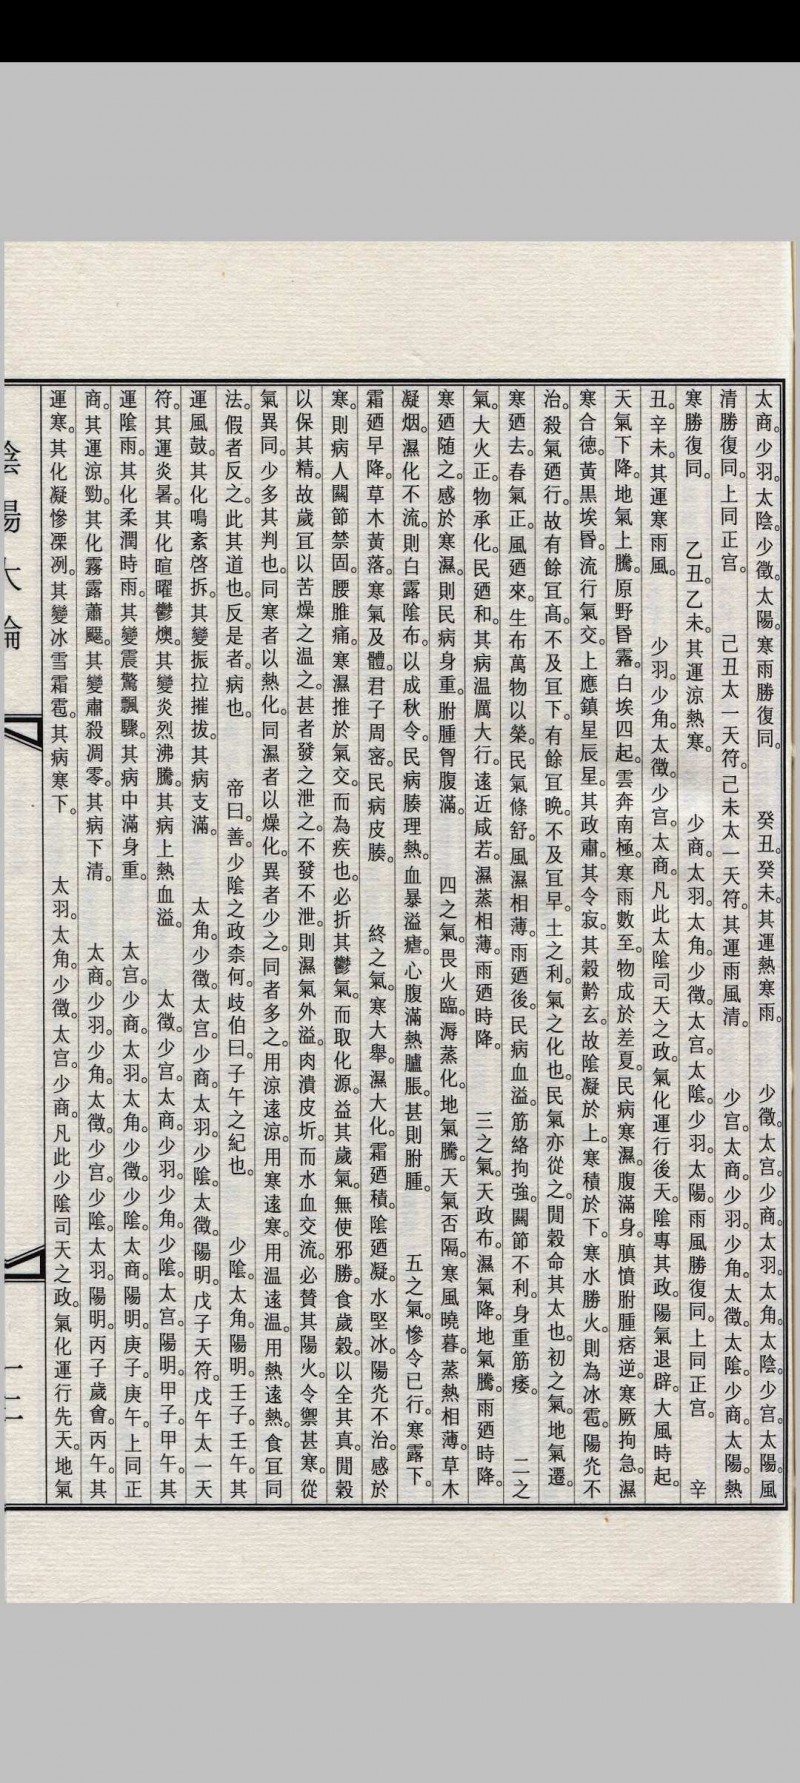 太商。少羽。太陰。少徵。太陽。寒雨勝復同。　癸丑。癸未。其運熱寒雨。　少徵。太宫。少商。太羽。太角。太陰。少宫。太陽。風
清勝復同。上同正宫。　己丑太一天符。己未太一天符。其運雨風清。　少宫。太商。少羽。少角。太徵。太陰。少商。太陽。熱
寒勝復同。　乙丑。乙未。其運涼熱寒。　少商。太羽。太角。少徵。太宫。太陰。少羽。太陽。雨風勝復同。上同正宫。　辛
丑。辛未。其運寒雨風。　少羽。少角。太徵。少宫。太商。凡此太陰司天之政。氣化運行後天。陰專其政。陽氣退辟。大風時起。
天氣下降。地氣上騰。原野昏霧。白埃四起。雲奔南極。寒雨數至。物成於差夏。民病寒濕。腹滿身䐜憤胕腫痞逆。寒厥拘急。濕
寒合德。黃黑埃昏。流行氣交。上應鎮星辰星。其政肅。其令寂。其穀黅玄。故陰凝於上。寒積於下。寒水勝火。則為冰雹。陽光不
治。殺氣廼行。故有餘宜高。不及宜下。有餘宜晚。不及宜早。土之利。氣之化也。民氣亦從之。閒穀命其太也。初之氣。地氣遷。
寒廼去。春氣正。風廼來。生布萬物以榮。民氣條舒。風濕相薄。雨廼後。民病血溢。筋絡拘強。關節不利。身重筋痿。　二之
氣。大火正。物承化。民廼和。其病温厲大行。遠近咸若。濕蒸相薄。雨廼時降。　三之氣。天政布。濕氣降。地氣騰。雨廼時降。
寒廼随之。感於寒濕。則民病身重。胕腫胷腹滿。　四之氣。畏火臨。溽蒸化。地氣騰。天氣否隔。寒風曉暮。蒸熱相薄。草木
凝烟。濕化不流。則白露陰布。以成秋令。民病腠理熱。血暴溢瘧。心腹滿熱臚脹。甚則胕腫。　五之氣。慘令已行。寒露下。
霜廼早降。草木黃落。寒氣及體。君子周密。民病皮腠。　終之氣。寒大舉。濕大化。霜廼積。陰廼凝。水堅冰。陽光不治。感於
寒。則病人關節禁固。腰脽痛。寒濕推於氣交。而為疾也。必折其鬱氣。而取化源。益其歲氣。無使邪勝。食歲穀。以全其真。閒穀
以保其精。故歲宜以苦燥之温之。甚者發之泄之。不發不泄。則濕氣外溢。肉潰皮坼。而水血交流。必賛其陽火。令禦甚寒。從
氣異同。少多其判也。同寒者以熱化。同濕者以燥化。異者少之。同者多之。用涼遠涼。用寒遠寒。用温遠温。用熱遠熱。食宜同
法。假者反之。此其道也。反是者。病也。　帝曰。善。少陰之政柰何。歧伯曰。子午之紀也。　少陰。太角。陽明。壬子。壬午。其
運風鼓。其化鳴紊啓拆。其變振拉摧拔。其病支滿。　太角。少徵。太宫。少商。太羽。少陰。太徵。陽明。戊子天符。戊午太一天
符。其運炎暑。其化暄曜鬱燠。其變炎烈沸騰。其病上熱血溢。　太徵。少宫。太商。少羽。少角。少陰。太宫。陽明。甲子。甲午。其
運陰雨。其化柔潤時雨。其變震驚飄驟。其病中滿身重。　太宫。少商。太羽。太角。少徵。少陰。太商。陽明。庚子。庚午。上同正
商。其運涼勁。其化霧露蕭飋。其變肅殺凋零。其病下清。　太商。少羽。少角。太徵。少宫。少陰。太羽。陽明。丙子歲會。丙午。其
運寒。其化凝慘凓冽。其變冰雪霜雹。其病寒下。　太羽。太角。少徵。太宫。少商。凡此少陰司天之政。氣化運行先天。地氣
陰陽大論